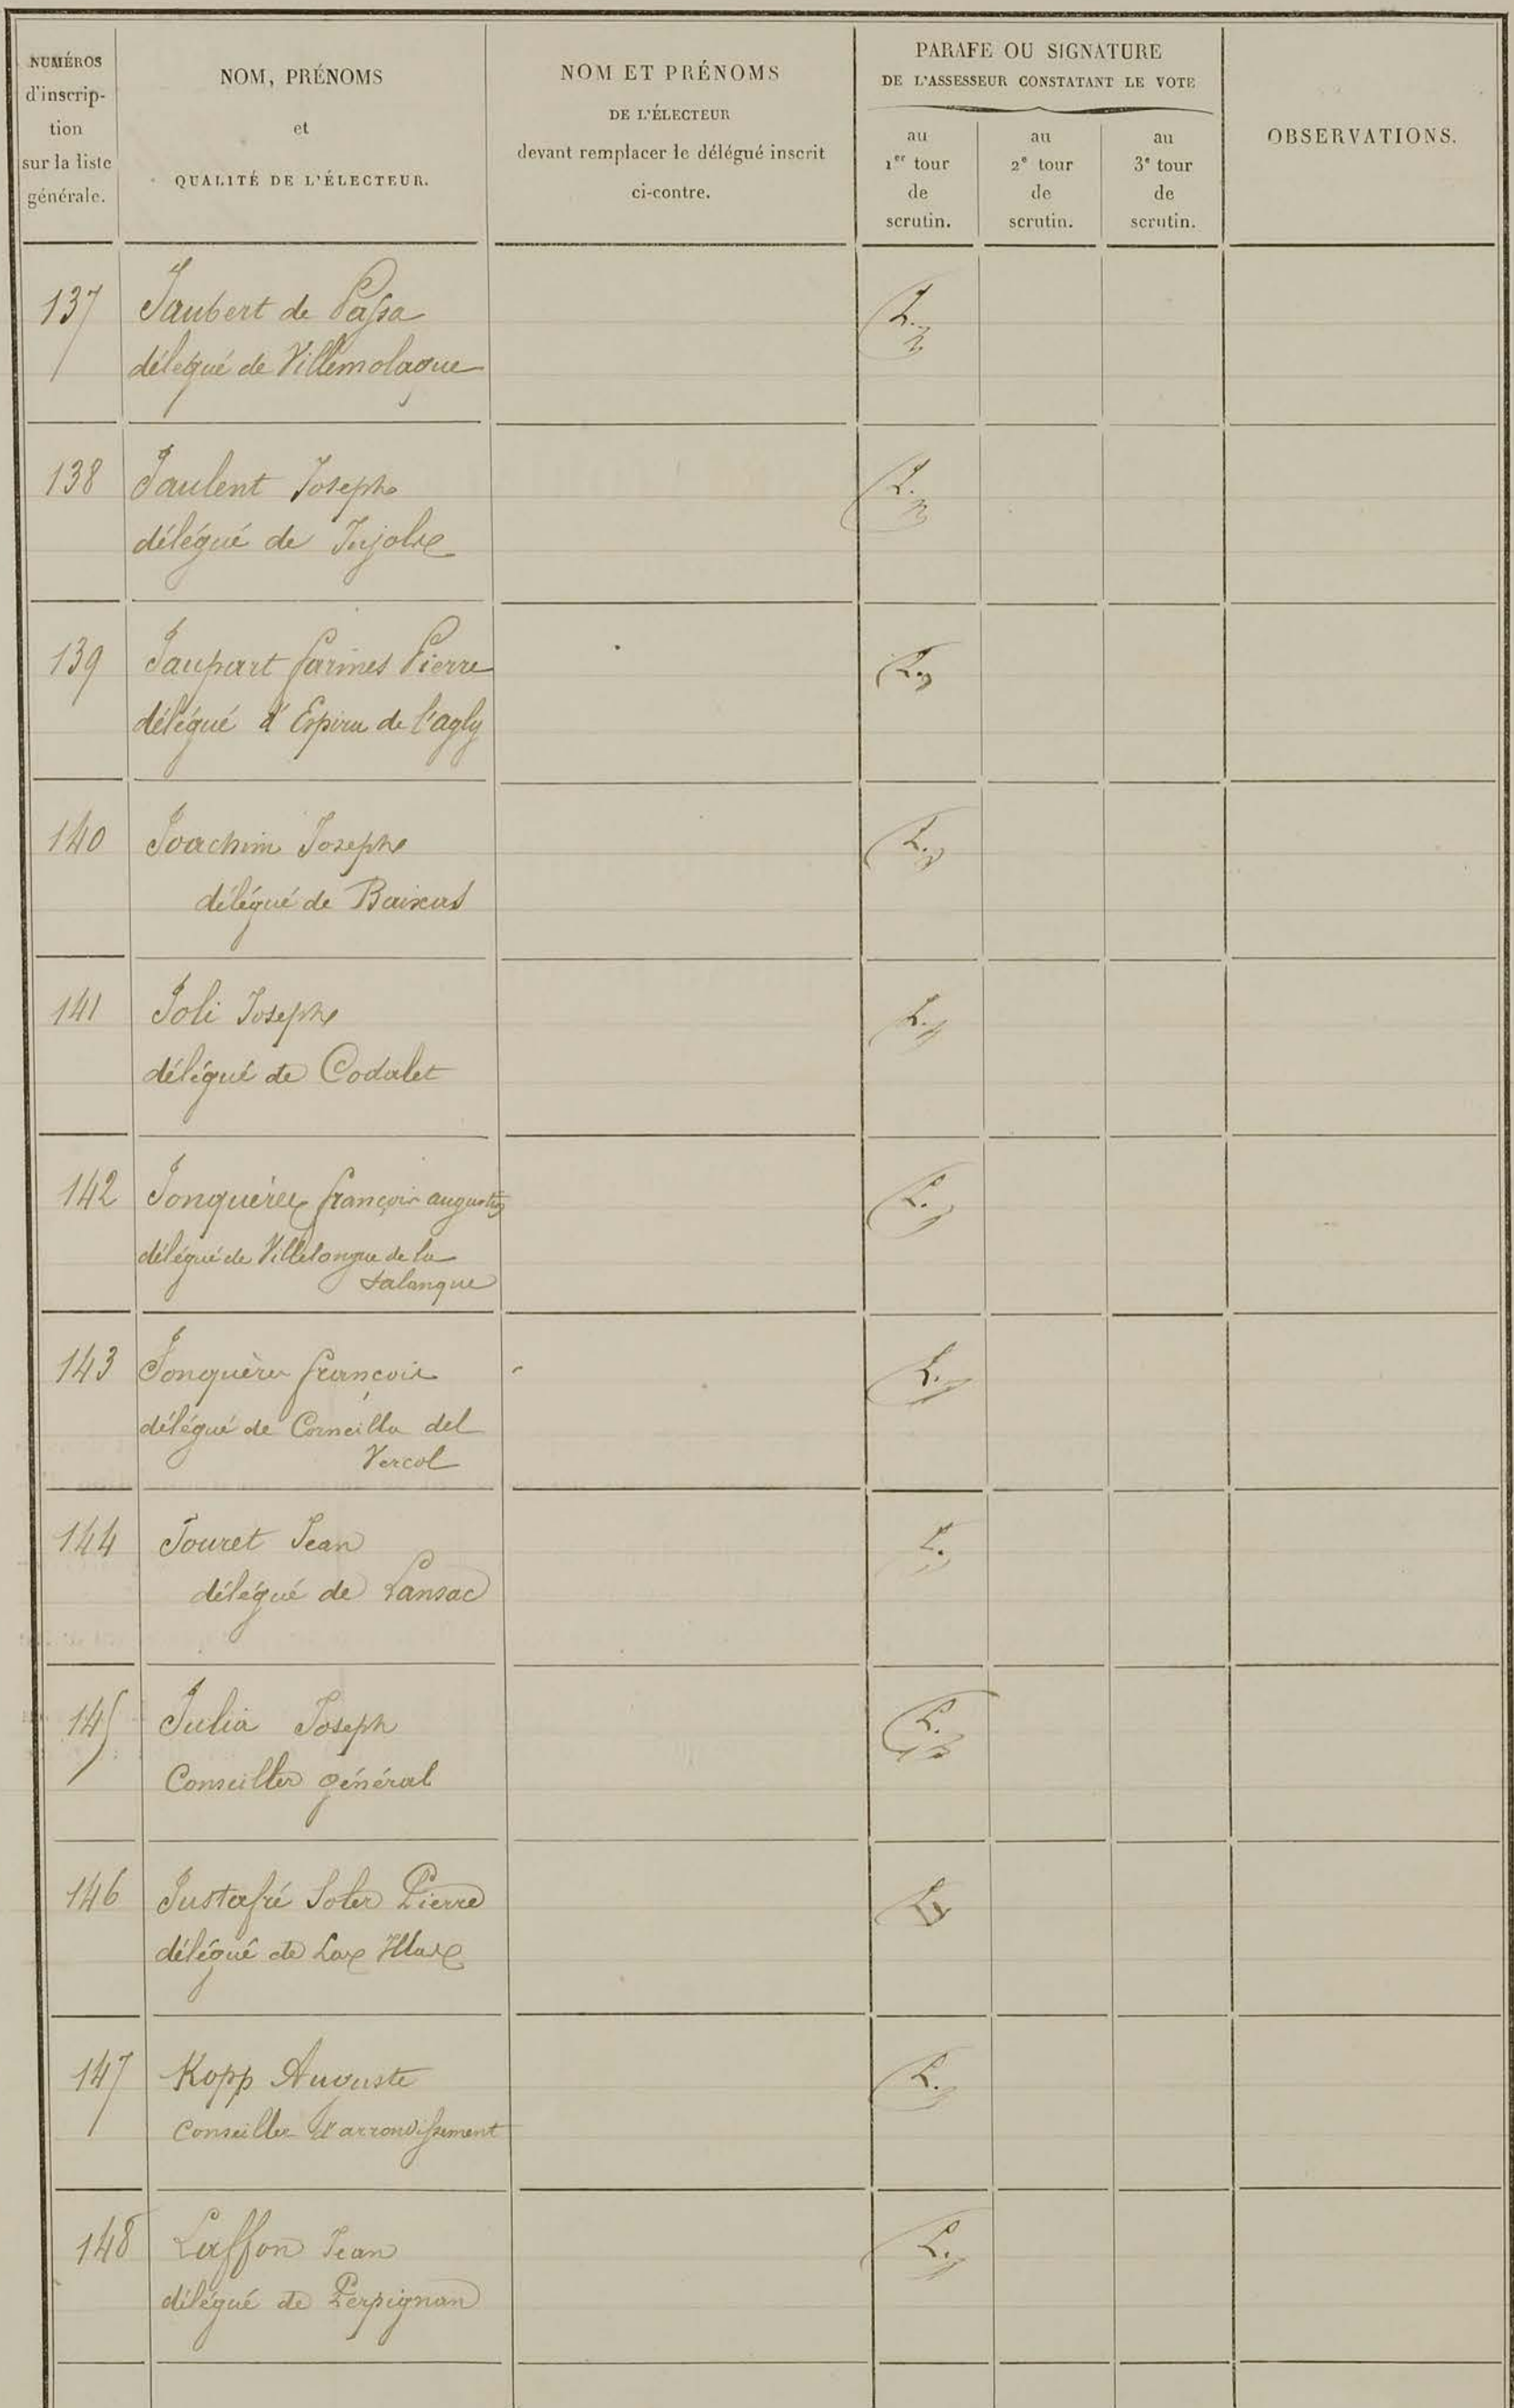 NUMÉROS
d'inscrip-
tion
sur la liste
générale.
NOM, PRÉNOMS
et
QUALITÉ DE L'ÉLECTEUR.
NOM ET PRÉNOMS
DE L'ÉLECTEUR
devant remplacer le délégué inscrit
ci-contre.
PARAFE OU SIGNATURE
DE L'ASSESSEUR CONSTATANT LE VOTE
au
1er tour
de
scrutin.
au
2e tour
de
scrutin.
au
3e tour
de
scrutin.
OBSERVATIONS.
137 Jaubert de Passa
délégué de Villemolaque
138 Jaulent Joseph
délégué de Jujols
139 Jaupart farines Pierre
délégué d'Espira de l'agly
140 Joachim Joseph
délégué de Baixas
141 Joli Joseph
délégué de Codalet
142 Jonquères françois augustin
délégué de Villelongue de la
salanque
143 Jonquères françois
délégué de Corneilla del
Vercol
144 Jouret Jean
délégué de Lansac
145 Julia Joseph
Conseiller général
146 Justafré Soler Pierre
délégué de Las Illas
147 Kopp Auguste
Conseiller d'arrondissement
148 Laffon Jean
délégué de Perpignan